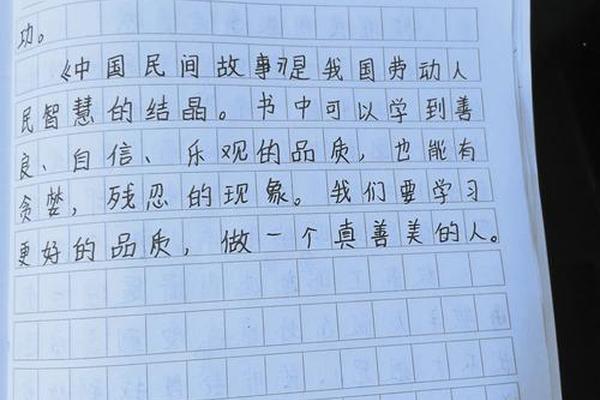 功。
《中国民间故事》是我国劳动人
民智慧的结晶。书中可以学到善
良、自信、乐观的品质，也能有
贪婪，残忍的现象。我们要学习
更好的品质，做一个真善美的人。